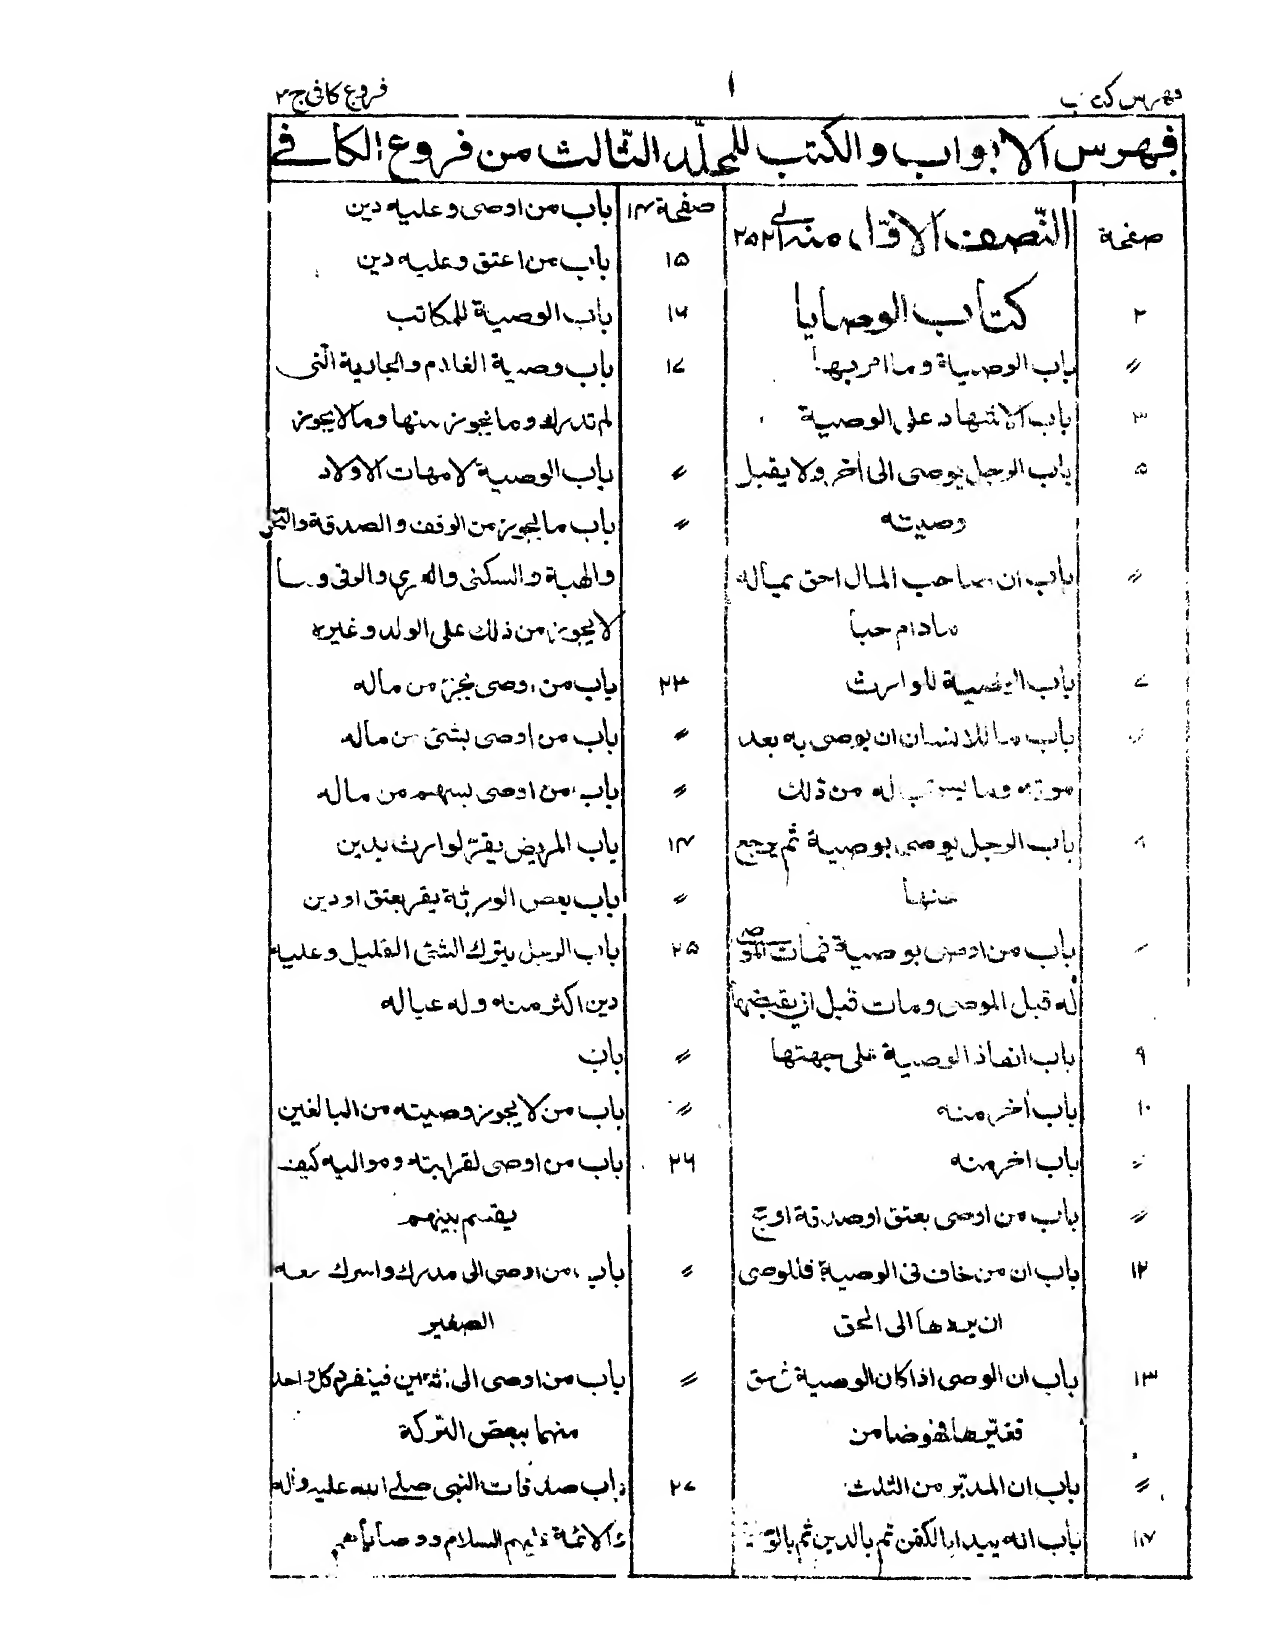 فهرس كتاب
١
فروع كافي ج ٣
فهرس الابواب والكتب للمجلّد الثّالث من فروع الكافے
صفحة
النّصف الاوّل منه الے ٢٥٢
٢ كتاب الوصايا
〃 باب الوصية وما امر بها
٣ باب الاشهاد على الوصية
٥ باب الرجل يوصى الى أخر ولا يقبل
وصيته
〃 باب ان صاحب المال احق بماله
مادام حيا
٧ باب الوصية للوارث
〃 باب ما للانسان ان يوصى به بعد
موته وما يستحب له من ذلك
٨ باب الرجل يوصى بوصية ثم يرجع
عنها
〃 باب من اوصى بوصية فمات الموصى
له قبل الموصى ومات قبل ان يقبضها
٩ باب انفاذ الوصية على جهتها
١٠ باب أخر منه
〃 باب اخر منه
〃 باب من اوصى بعتق او صدقة او حج
١٢ باب ان من خاف فى الوصية فللوصى
ان يردها الى الحق
١٣ باب ان الوصى اذا كان الوصية فى حق
فغيّرها فهو ضامن
〃 باب ان المدبّر من الثلث
١٤ باب انه يبدا بالكفن ثم بالدين ثم بالوصية
صفحة ١٤ باب من اوصى وعليه دين
١٥ باب من اعتق وعليه دين
١٦ باب الوصية للمكاتب
١٧ باب وصية الغلام والجارية الّتى
لم تدرك وما يجوز منها وما لا يجوز
〃 باب الوصية لامهات الاولاد
〃 باب ما يجوز من الوقف والصدقة والنحل
والهبة والسكنى والعمرى والرقبى وما
لا يجوز من ذلك على الولد وغيره
٢٣ باب من اوصى بجزء من ماله
〃 باب من اوصى بشئ من ماله
〃 باب من اوصى بسهم من ماله
باب المريض يقرّ لوارث بدين
〃 باب بعض الورثة يقر بعتق او دين
٢٥ باب الرجل يترك الشئ القليل وعليه
دين اكثر منه وله عياله
〃 باب
〃 باب من لا يجوز وصيته من البالغين
٢٦ باب من اوصى لقراباته ومواليه كيف
يقسم بينهم
〃 باب من اوصى الى مدرك واشرك معه
الصغير
〃 باب من اوصى الى اثنين فينفرد كل واحد
منهما ببعض التركة
٢٧ باب صدقات النبى صلے الله عليه وأله
والائمة عليهم السلام ووصاياهم